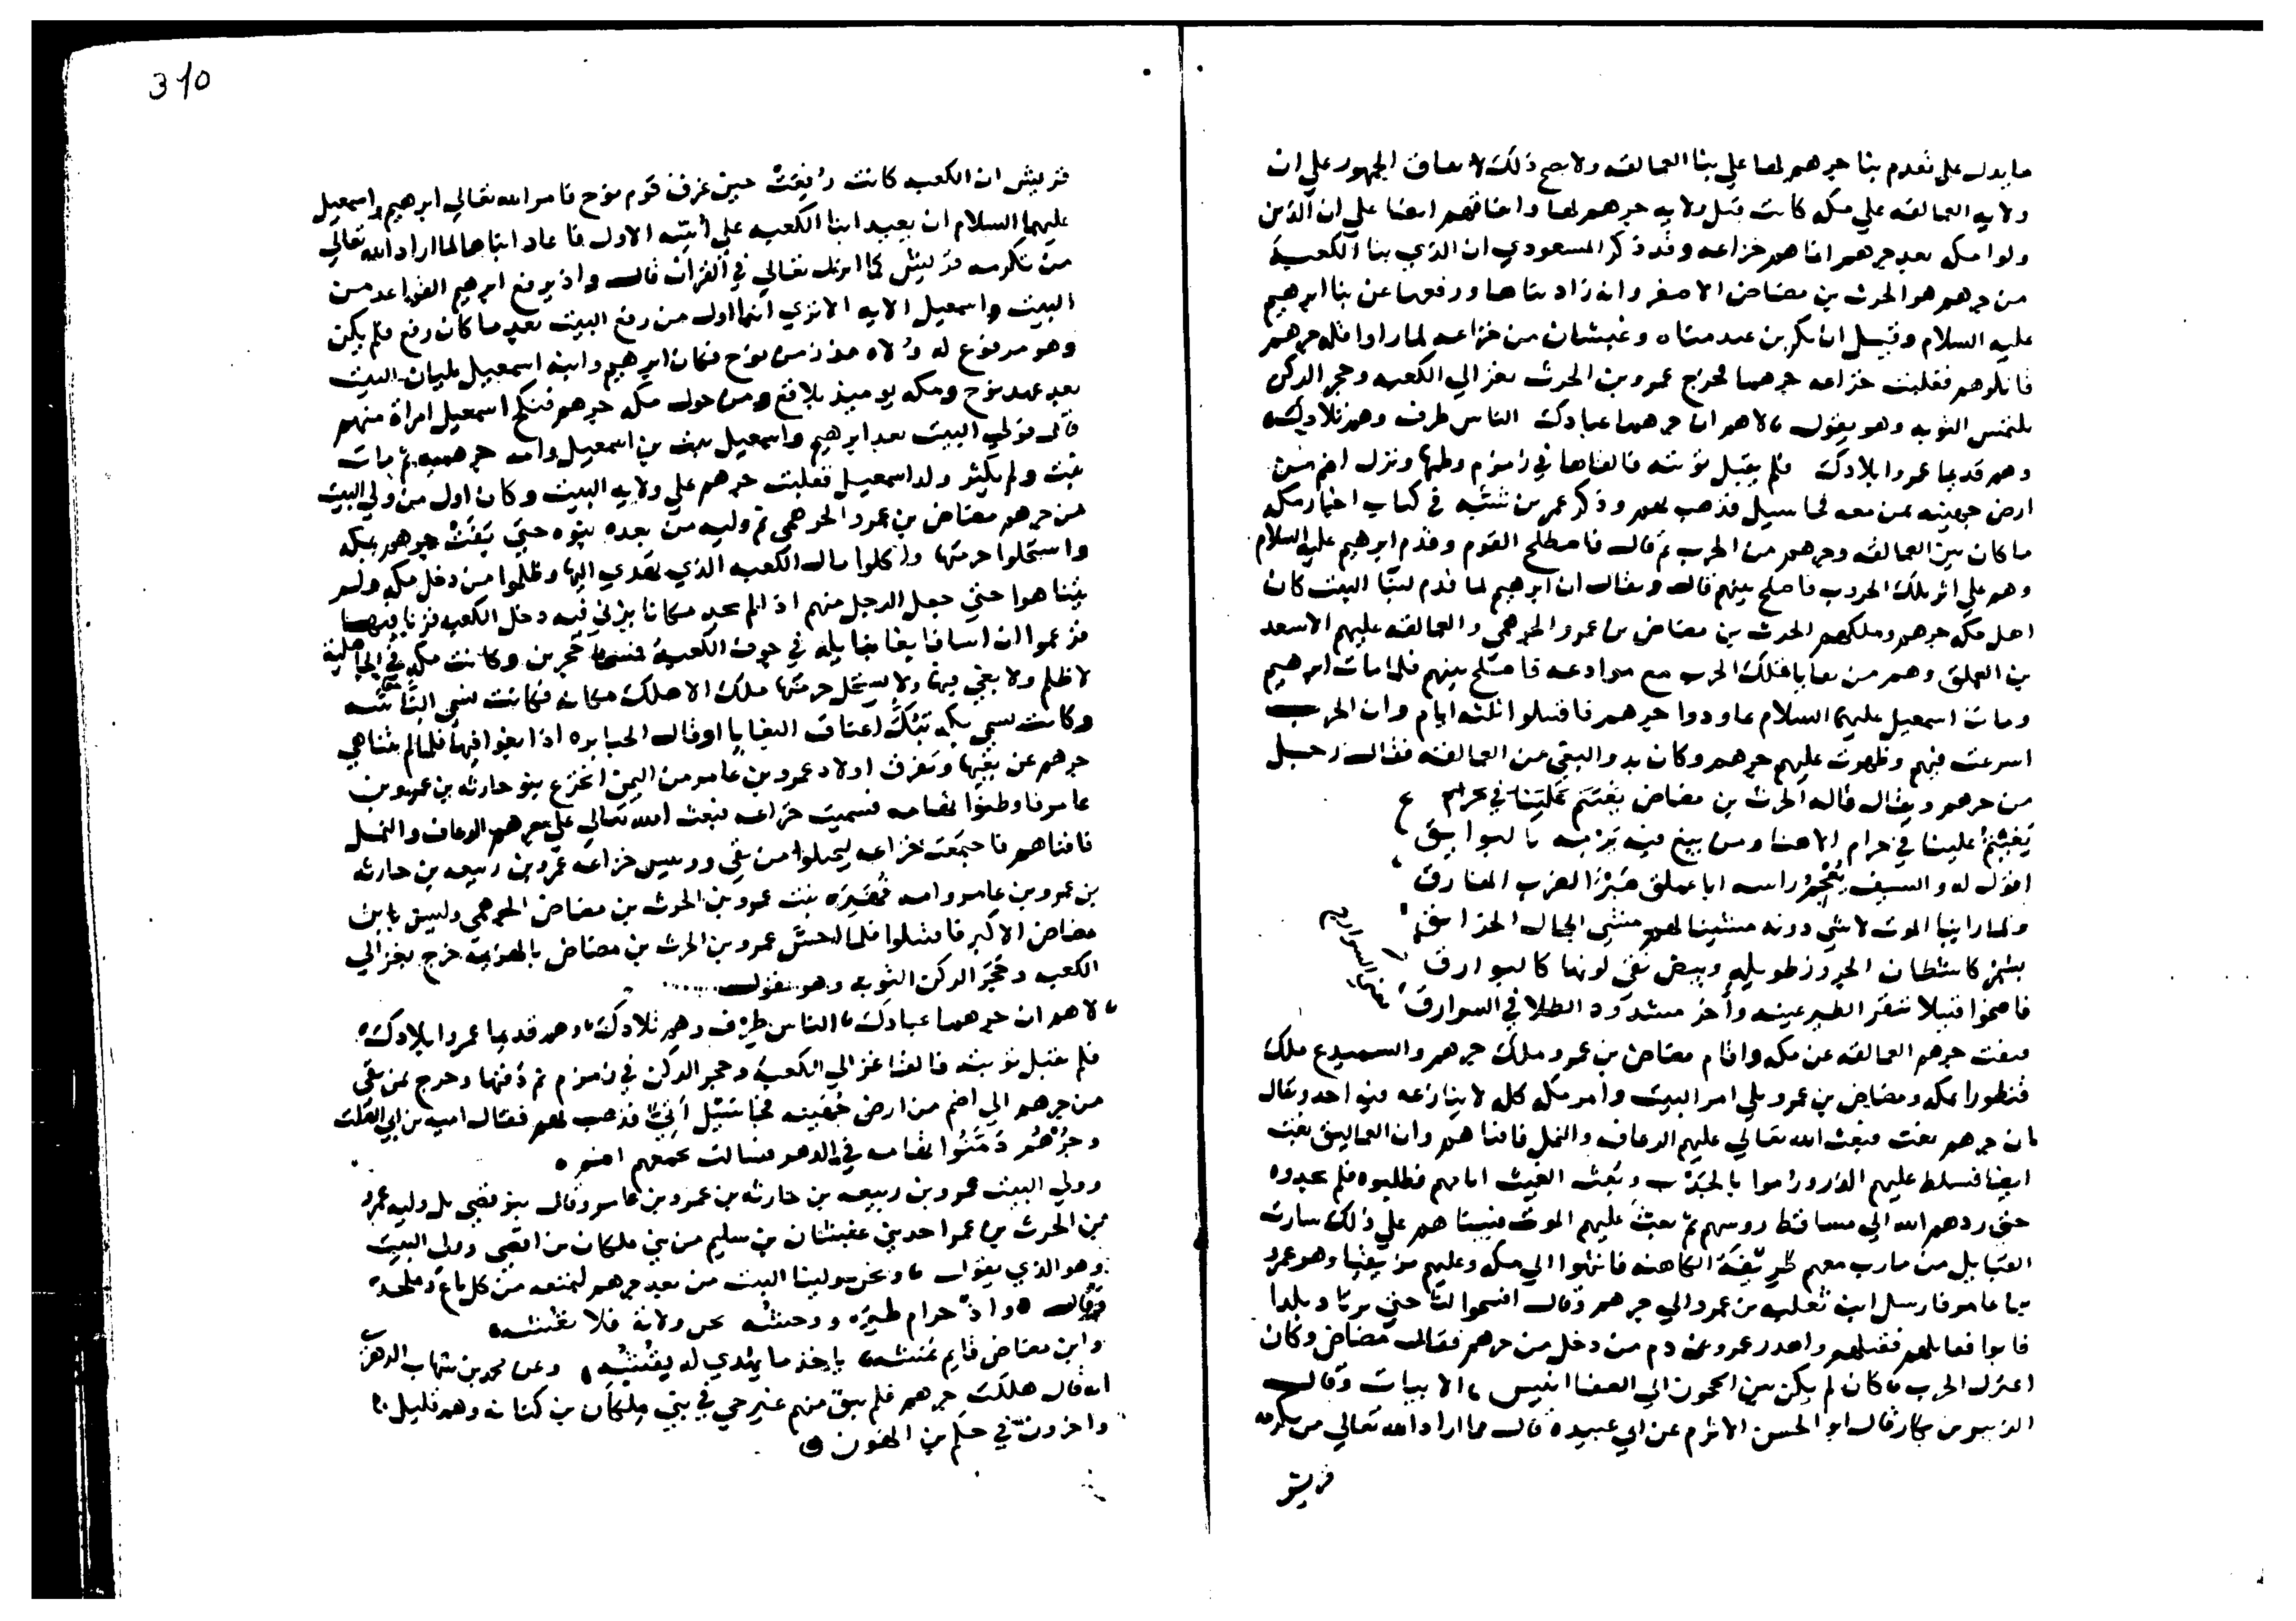 ما يدل على تقدم بنا جرهم لها على بنا العمالقه ولا يصح ذلك لاتفاق الجمهور على ان
ولايه العمالقه على مكه كانت قبل ولايه جرهم لها واتفاقهم ايضا على ان الذين
ولوا مكه بعد جرهم انما هم خزاعه وقد ذكر المسعودي ان الذي بنا الكعبة
من جرهم هو الحرث بن مضاض الاصغر وانه زاد بناها ورفعها عن بنا ابرهيم
عليه السلام وقيل ان بكر بن عبد مناه وغبشان من خزاعه لما راوا قله جرهم
قاتلوهم فغلبت خزاعه جرهما فخرج عمرو بن الحرث بغزالي الكعبه وحجر الركن
يلتمس التوبه وهو يقول لاهم ان جرهما عبادك الناس طرف وهم تلادك
وهم قديما عمروا بلادك فلم تقبل توبته فالقاها في زمزم وطمها ونزل اضم من
ارض جهينه بمن معه فجا سيل فذهب بهم وذكر عمر بن شبه في كتاب اخبار مكه
ما كان بين العمالقه وجرهم من الحرب ثم قال فاصطلح القوم وقدم ابرهيم عليه السلام
وهم على اثر تلك الحروب فاصلح بينهم قال ويقال ان ابرهيم لما قدم لبنا البيت كان
اهل مكه جرهم وملكهم الحرث بن مضاض بن عمرو الجرهمي والعمالقه عليهم الاسعد
بن العملق وهم من بقايا تلك الحرب مع موادعه فاصلح بينهم فلما مات ابرهيم
ومات اسمعيل عليهما السلام عاودوا جرهم فاقتتلوا ثلثه ايام وان الحرب
اسرعت فيهم وظهرت عليهم جرهم وكان بدو البغي من العمالقه فقال رجل
من جرهم ويقال قاله الحرث بن مضاض
بغيتم علينا في حرام الاهنا ومن يبغ فيه يرمه بالبوايق
اقول له والسيف يعجم راسه ابا عملق
ولما راينا الموت لا شي دونه مشينا لهم مشي الجمال
بسمر كاشطان الجرور طويله وبيض نقي لونها كالبوارق
فاضحوا قتيلا تنقر الطير عينه واخر مشدود الطلا في السوارق
فنفت جرهم العمالقه عن مكه واقام مضاض بن عمرو ملك جرهم والسميدع ملك
قنطورا بمكه ومضاض بن عمرو يلي امر البيت وامر مكه كله لا ينازعه فيه احد ويقال
ان جرهم بغت فبعث الله تعالى عليهم الرعاف والنمل فافناهم وان العماليق بغت
ايضا فسلط عليهم الذر ورموا بالجدب وبعث الغيث امامهم فطلبوه فلم يجدوه
حتى ردهم الله الى مساقط روسهم ثم بعث عليهم الموت فبينا هم على ذلك سارت
القبايل من مارب معهم طريفة الكاهنه فانتهوا الى مكه وعليهم مزيقيا وهو عمرو
بن عامر فارسل ابنه ثعلبه بن عمرو الى جرهم وقال افسحوا لنا حتى نرتاد بلدا
فابوا فقاتلهم فقتلهم واهدر عمرو بن دم من دخل من جرهم فقال مضاض وكان
اعتزل الحرب كان لم يكن بين الحجون الى الصفا انيس الابيات وقال
الزبير بن بكار قال ابو الحسن الاثرم عن ابي عبيده قال مما اراد الله تعالى من تكرمه
قريش
310
قريش ان الكعبه كانت رُفِعَتْ حين غرق قوم نوح فامر الله تعالى ابرهيم واسمعيل
عليهما السلام ان يعيدا بنا الكعبه على أسه الاول فاعادا بناها لما اراد الله تعالى
من تكرمه قريش كما انزل تعالى في القران قال واذ يرفع ابرهيم القواعد من
البيت واسمعيل الايه الا ترى انهما اول من رفع البيت بعد ما كان رفع فلم يكن
وهو مرفوع له وُلاه منذ زمن نوح فكان ابرهيم وابنه اسمعيل يليان البيت
بعد عهد نوح ومكه يوميذ بلاقع ومن حول مكه جرهم فنكح اسمعيل امراة منهم
قال تولى البيت بعد ابرهيم واسمعيل نبت بن اسمعيل وامه جرهميه ثم مات
نبت ولم يكثر ولد اسمعيل فغلبت جرهم على ولايه البيت وكان اول من ولي البيت
من جرهم مضاض بن عمرو الجرهمي ثم وليه من بعده بنوه حتى بَغَتْ جرهم بمكه
واستحلوا حرمتها واكلوا مال الكعبه الذي يهدي اليها وظلموا من دخل مكه ولم
يتناهوا حتى جعل الرجل منهم اذا لم يجد مكانا يزني فيه دخل الكعبه فزنا فيها
فزعموا ان اسافا بغا بنايله في جوف الكعبة فمسخا حجرين وكانت مكه في الجاهلية
لا ظلم ولا بغي فيها ولا يستحل حرمتها ملك الا هلك مكانه فكانت تسمى الناسه
وكانت تسمى بكه تَبُكُّ اعناق البغايا او قال الجبابره اذا بغوا فيها فلما لم يتناهى
جرهم عن بغيها وتفرق اولاد عمرو بن عامر من اليمن انخزع بنو حارثه بن عمرو بن
عامر فاوطنوا تهامه فسميت خزاعه فبعث الله تعالى على جرهم الرعاف والنمل
فافناهم فاجتمعت خزاعه ليجلوا من بقي ورييس خزاعه عمرو بن ربيعه بن حارثه
بن عمرو بن عامر وامه فُهَيرَه بنت عمرو بن الحرث بن مضاض الجرهمي وليس بابن
مضاض الاكبر فاقتتلوا فلما احس عمرو بن الحرث بن مضاض بالهزيمة خرج بغزالي
الكعبه وحَجَر الركن التوبه وهو يقول
لاهم ان جرهما عبادك الناس طِرْف وهم تلادك وهم قديما عمروا بلادك
فلم تقبل توبته فالقا غزالي الكعبة وحجر الركن في زمزم ثم دفنها وخرج بمن بقي
من جرهم الى اضم من ارض جُهَينه فجا سَيْل أتيّ فذهب بهم فقال اميه بن ابي الصلت
وجُرْهُم دَمَّنُوا تهامه في الدهر فسالت بجمعهم اضم
وولي البيت عمرو بن ربيعه بن حارثه بن عمرو بن عامر وقال بنو قصي بل وليه عمرو
بن الحرث بن عمرو احد بني غبشان بن سليم من بني ملكان بن افصى وولي البيت
وهو الذي يقول ونحن ولينا البيت من بعد جرهم لنمنعه من كل باغ وملحد
وقال واد حرام طيره ووحشه نحن ولاته فلا نغشه
وابن مضاض قايم ياخذ ما يهدى له يفشه وعن محمد بن شهاب الزهري
انه قال هلكت جرهم فلم يبق منهم غير حي في بني مِلكان بن كنانه وهم قليل
واخرون في حكم بن الهون